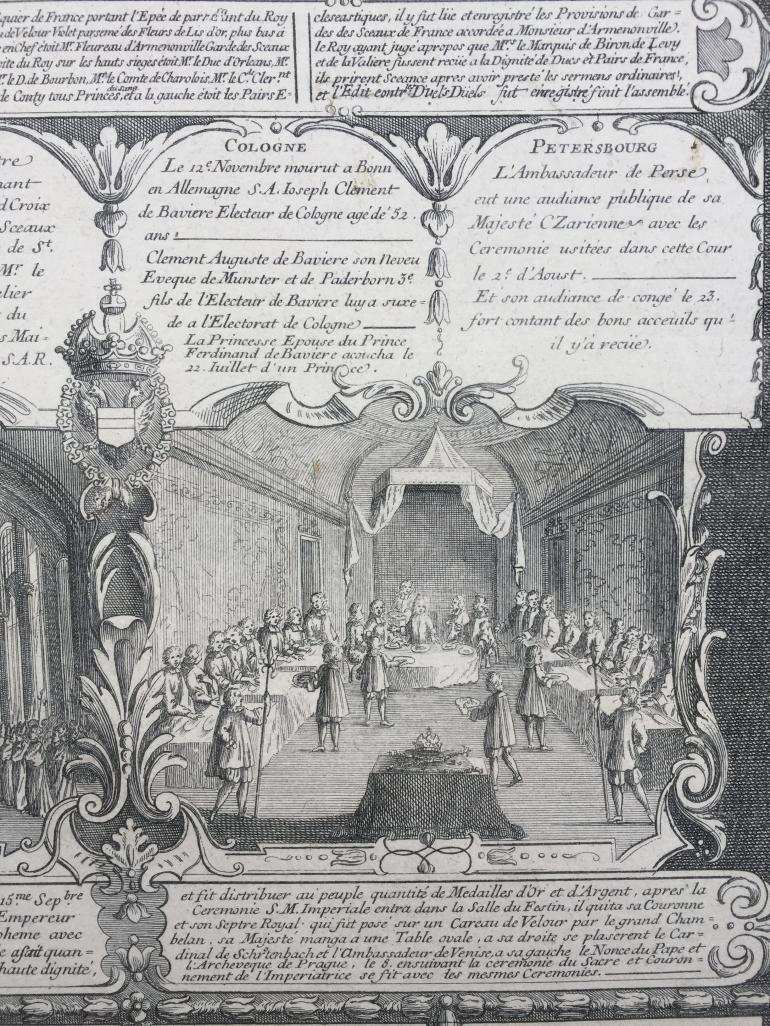 quier de France portant l'Epée de
du Roy
de Velour Violet parsemé des Fleurs de Lis d'or, plus bas a
en Chef étoit Mr. Fleureau d'Armenonville Garde des Sceaux
ite du Roy sur les hauts sieges étoit Mr. le Duc d'Orleans, Mr.
le D. de Bourbon, Mr. le Comte de Charolois, Mr. le Ct. Clernt
de Conty tous Princes du sang, et a la gauche étoit les Pairs E-
cleseastiques, il y fut lüe et enregistré les Provisions de Gar=
des des Sceaux de France accordée a Monsieur d'Armenonville.
le Roy ayant jugé apropos que Mrs. le Marquis de Biron de Levy
et de la Valiere fussent recüe a la Dignité de Ducs et Pairs de France,
ils prirent Sceance apres avoir presté les sermens ordinaires,
et l'Edit contre Duels Duels fut enregistré finit l'assemblé.
tre
nant
d Croix
Sceaux
de St.
Mr. le
elier
du
s Mai=
S.A.R.
COLOGNE
Le 12e. Novembre mourut a Bonn
en Allemagne S.A. Ioseph Clement
de Baviere Electeur de Cologne agé de 52.
ans
Clement Auguste de Baviere son Neveu
Eveque de Munster et de Paderborn 3e.
fils de l'Electeur de Baviere luy a suxe=
de a l'Electorat de Cologne
La Princesse Epouse du Prince
Ferdinand de Baviere acoucha le
22. Iuillet d'un Prince.
PETERSBOURG
L'Ambassadeur de Perse
eut une audiance publique de sa
Majesté CZarienne avec les
Ceremonie usitées dans cette Cour
le 2e. d'Aoust.
Et son audiance de congé le 23.
fort contant des bons acceuils qu'
il y'á recüe.
15me Sepbre
Empereur
oheme avec
quan=
haute dignité,
et fit distribuer au peuple quantité de Medailles d'Or et d'Argent, apres la
Ceremonie S.M. Imperiale entra dans la Salle du Festin, il quita sa Couronne
et son Septre Royal qui fut posé sur un Careau de Velour par le grand Cham=
belan, sa Majeste manga a une Table ovale, a sa droite se plaserent le Car=
dinal de Schrtenbach et l'Ambassadeur de Venise, a sa gauche le Nonce du Pape et
l'Archeveque de Prague, le 8. ensuivant la ceremonie du Sacre et Couron=
nement de l'Imperiatrice se fit avec les mesmes Ceremonies.